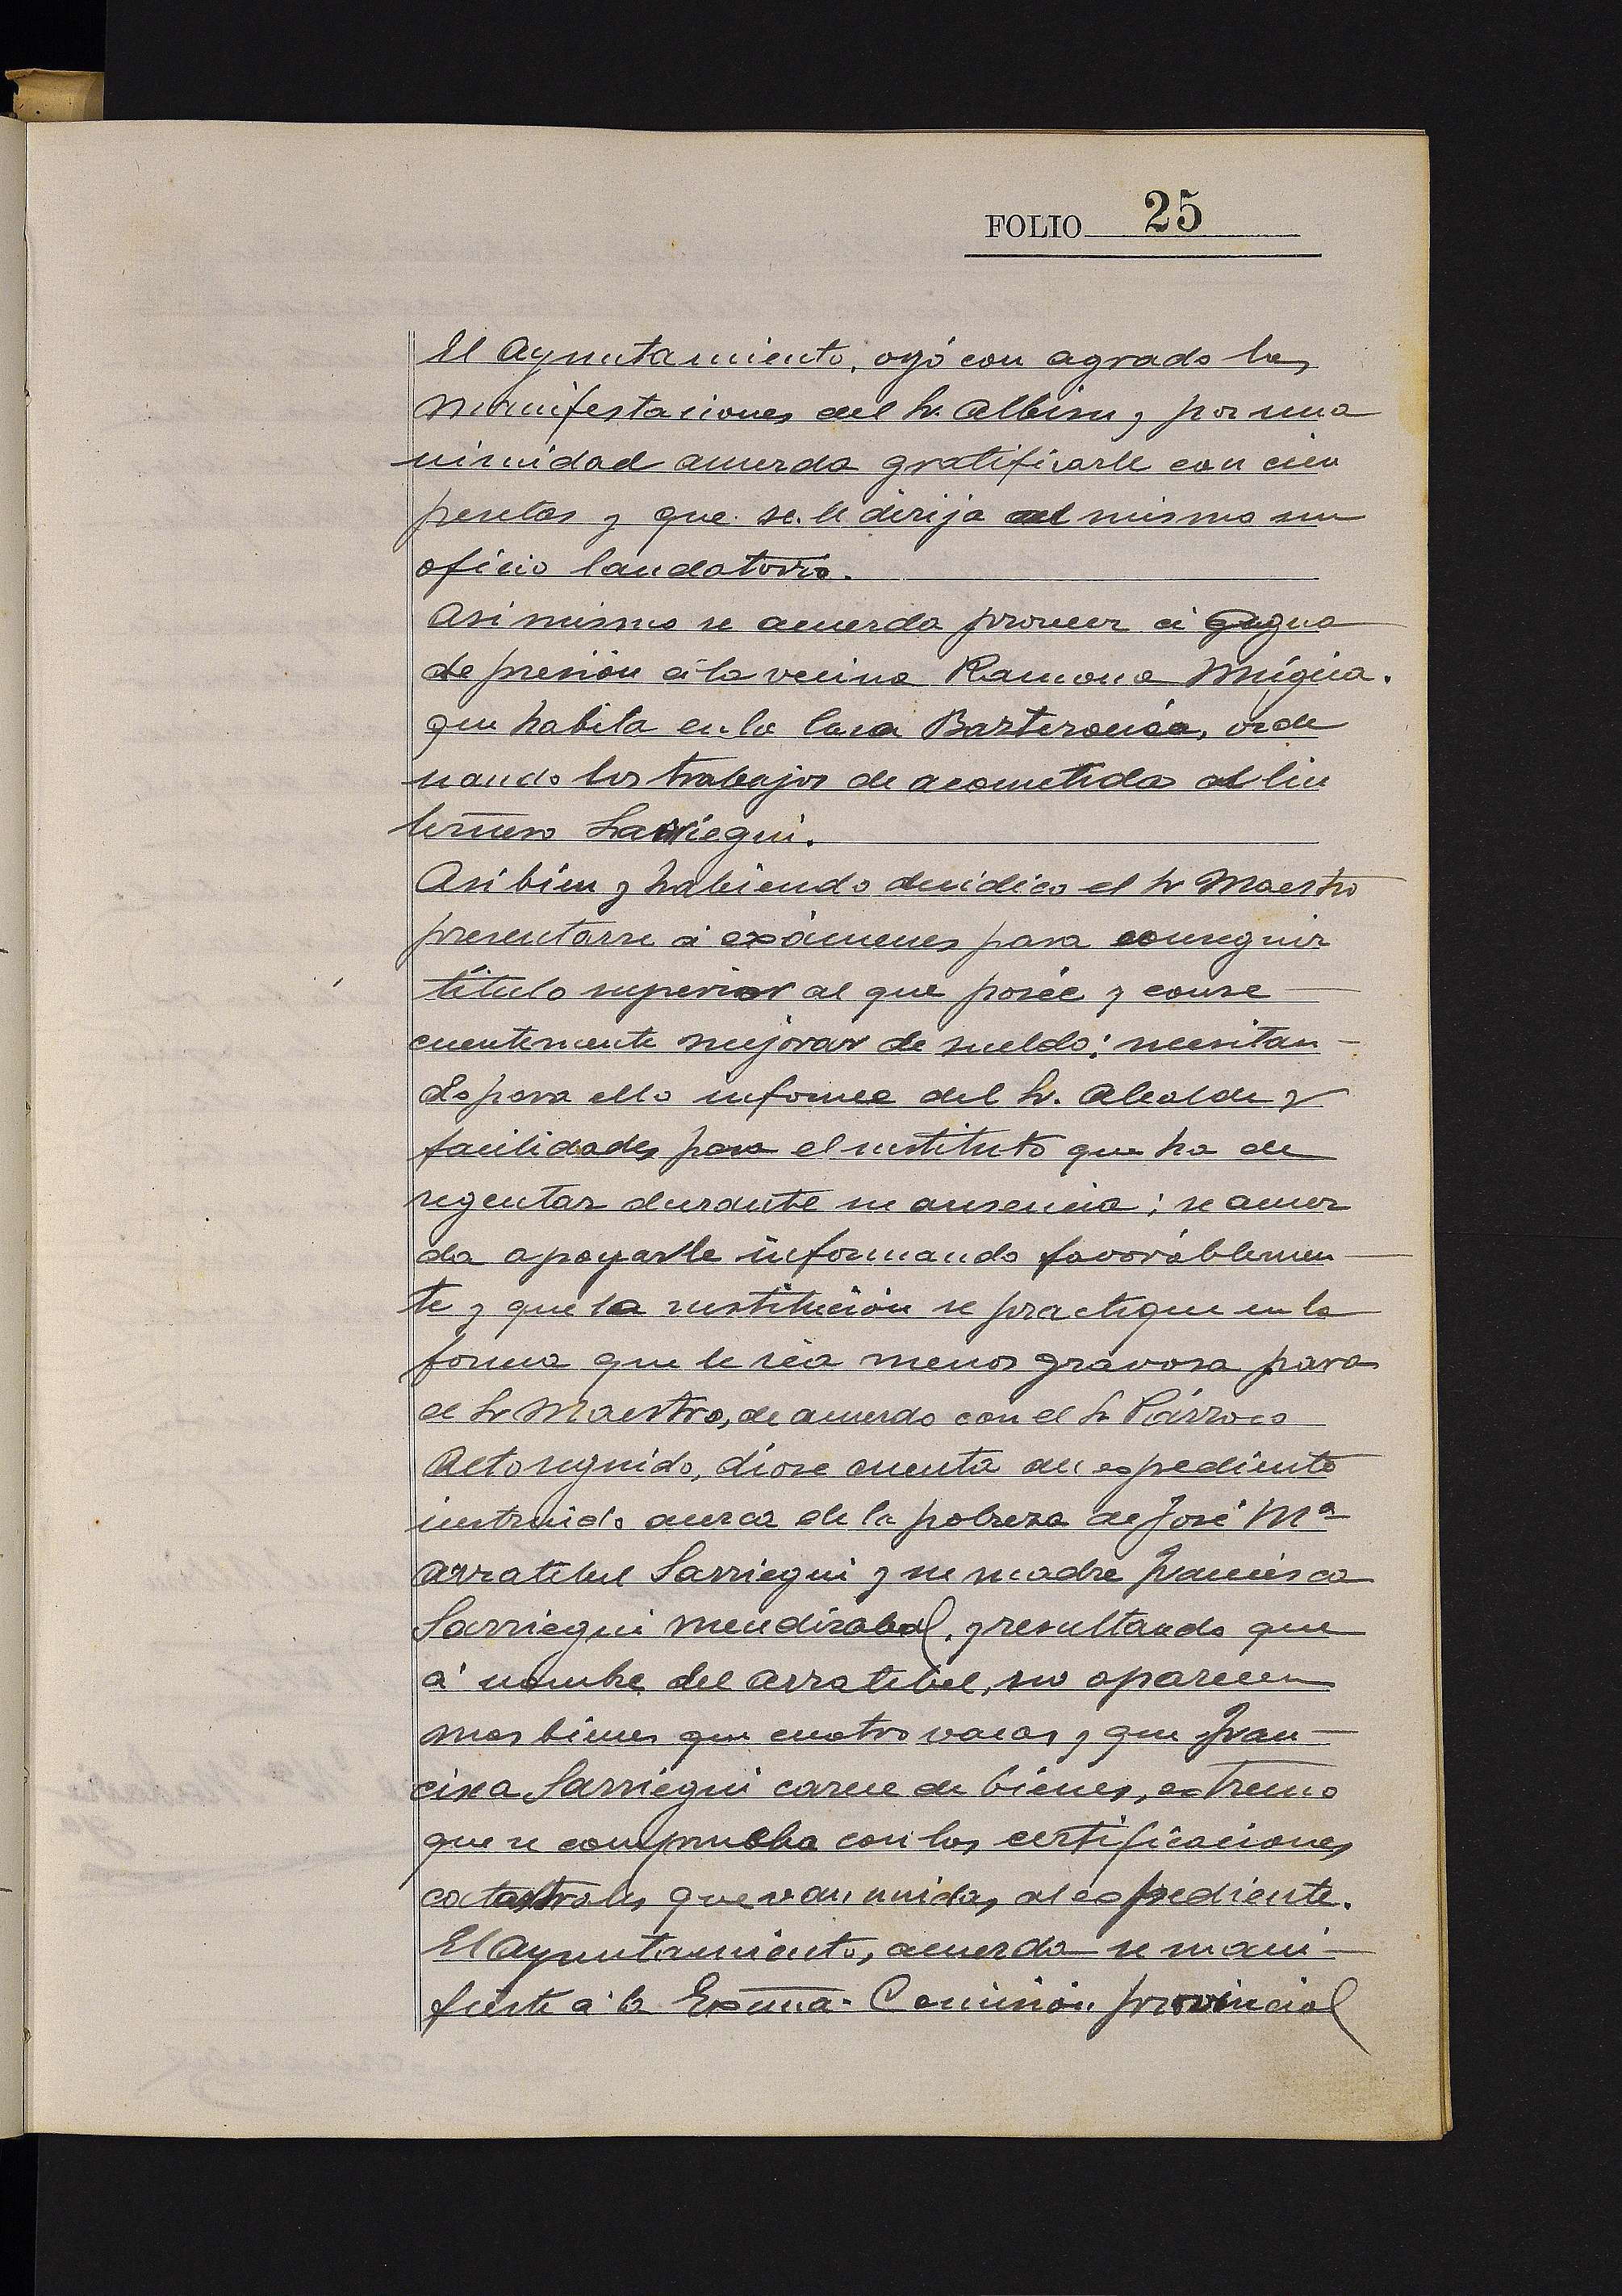 FOLIO 25
El Ayuntamiento, oyó con agrado las
manifestaciones del Sr. Albisu y por una
nimidad acuerda gratificarle con cien
pesetas y que se le dirija al mismo un
oficio laudatorio.
Asi mismo se acuerda proveer á agua
de presión á la vecina Ramona Múgica.
que habita en la Casa orde
nando los trabajos de acometida al lin
ternero Sarriegui.
Asi bien y habiendo decidido el Sr Maestro
presentarse á exámenes para conseguir
título superior al que posée y conse
cuentemente mejorar de sueldo: necesitan-
do para ello informe del Sr. Alcalde y
facilidades para el sustituto que ha de
regentar durante su ausencia: se acuer
da apoyarle informando favorablemen-
te y que la sustitución se practique en la
forma que le séa menos gravosa para
el Sr Maestro, de acuerdo con el Sr Párroco
Acto seguido, dióse cuenta del espediente
instruido acerca de la pobreza de José Mª
Arratibel Sarriegui y su madre Francisca
Sarriegui Mendizabal, y resultando que
á nombre del Arratibel, no aparecen
mas bienes que cuatro vacas y que Fran-
cisca Sarriegui carece de bienes, estremo
que se comprueba con las certificaciones
catastrales que van unidas al espediente.
El Ayuntamiento, acuerda se mani-
fieste á la Excma. Comisión provincial